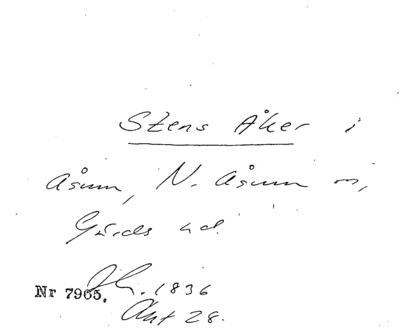 Stens Åker i
Åsum, N. Åsum sn,
Gärds hd.
Nr 7965. 1836
Akt 28.